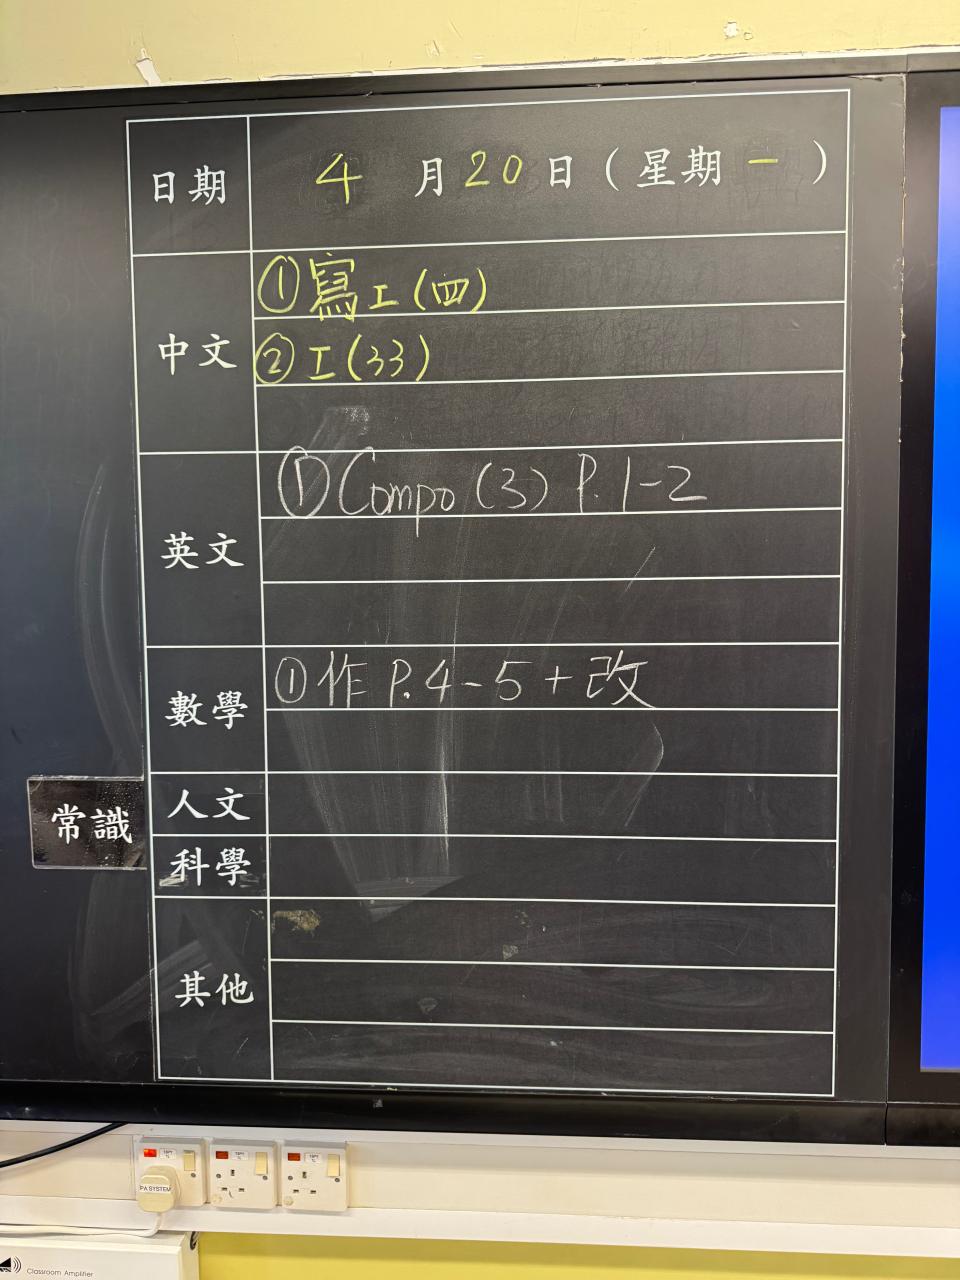 日期 4月20日(星期一)
中文 ①寫工(四)
②工(33)
英文 ①Compo (3) P. 1-2
數學 ①作 P.4-5+改
人文
常識
科學
其他
PA SYSTEM
Classroom Amplifier